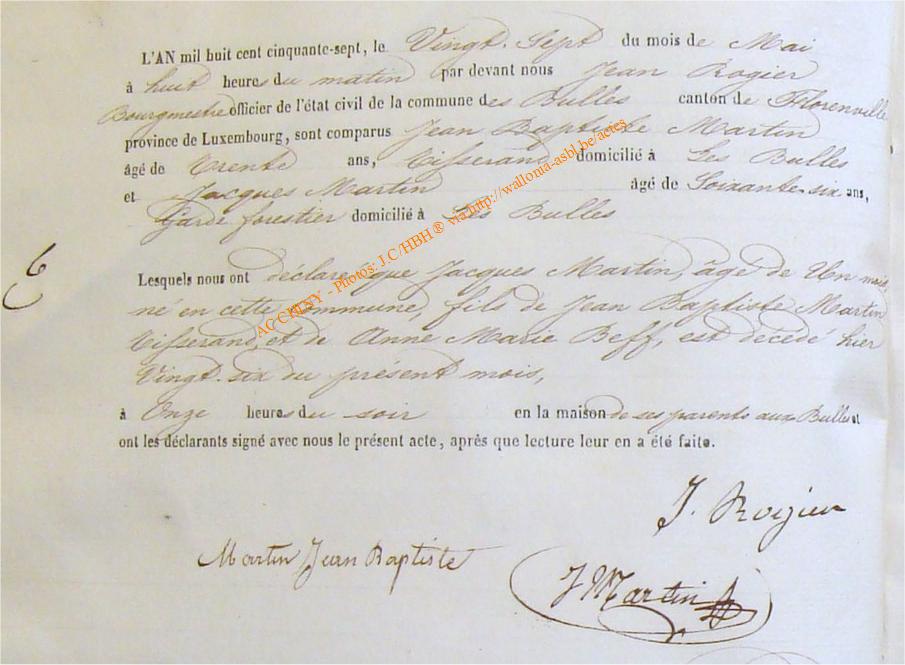 L'AN mil huit cent cinquante-sept, le Vingt-Sept du mois de Mai
à huit heures du matin par devant nous Jean Rogier
Bourgmestre officier de l'état civil de la commune des Bulles canton de Florenville
province de Luxembourg, sont comparus Jean Baptiste Martin
âgé de trente ans, tisserand domicilié à Les Bulles
et Jacques Martin âgé de Soixante-six ans,
Garde forestier domicilié à Les Bulles
6
Lesquels nous ont déclaré que Jacques Martin, âgé de Un mois,
né en cette commune, fils de Jean Baptiste Martin
tisserand, et de Anne Marie Beff, est décédé hier
Vingt-six du présent mois,
à Onze heures du soir en la maison de ses parents aux Bulles et
ont les déclarants signé avec nous le présent acte, après que lecture leur en a été faite.
J. Rogier
Martin Jean Baptiste
J Martin
ACCHINY - Photos: J.C/HBH ® via http://wallonia-asbl.be/actes